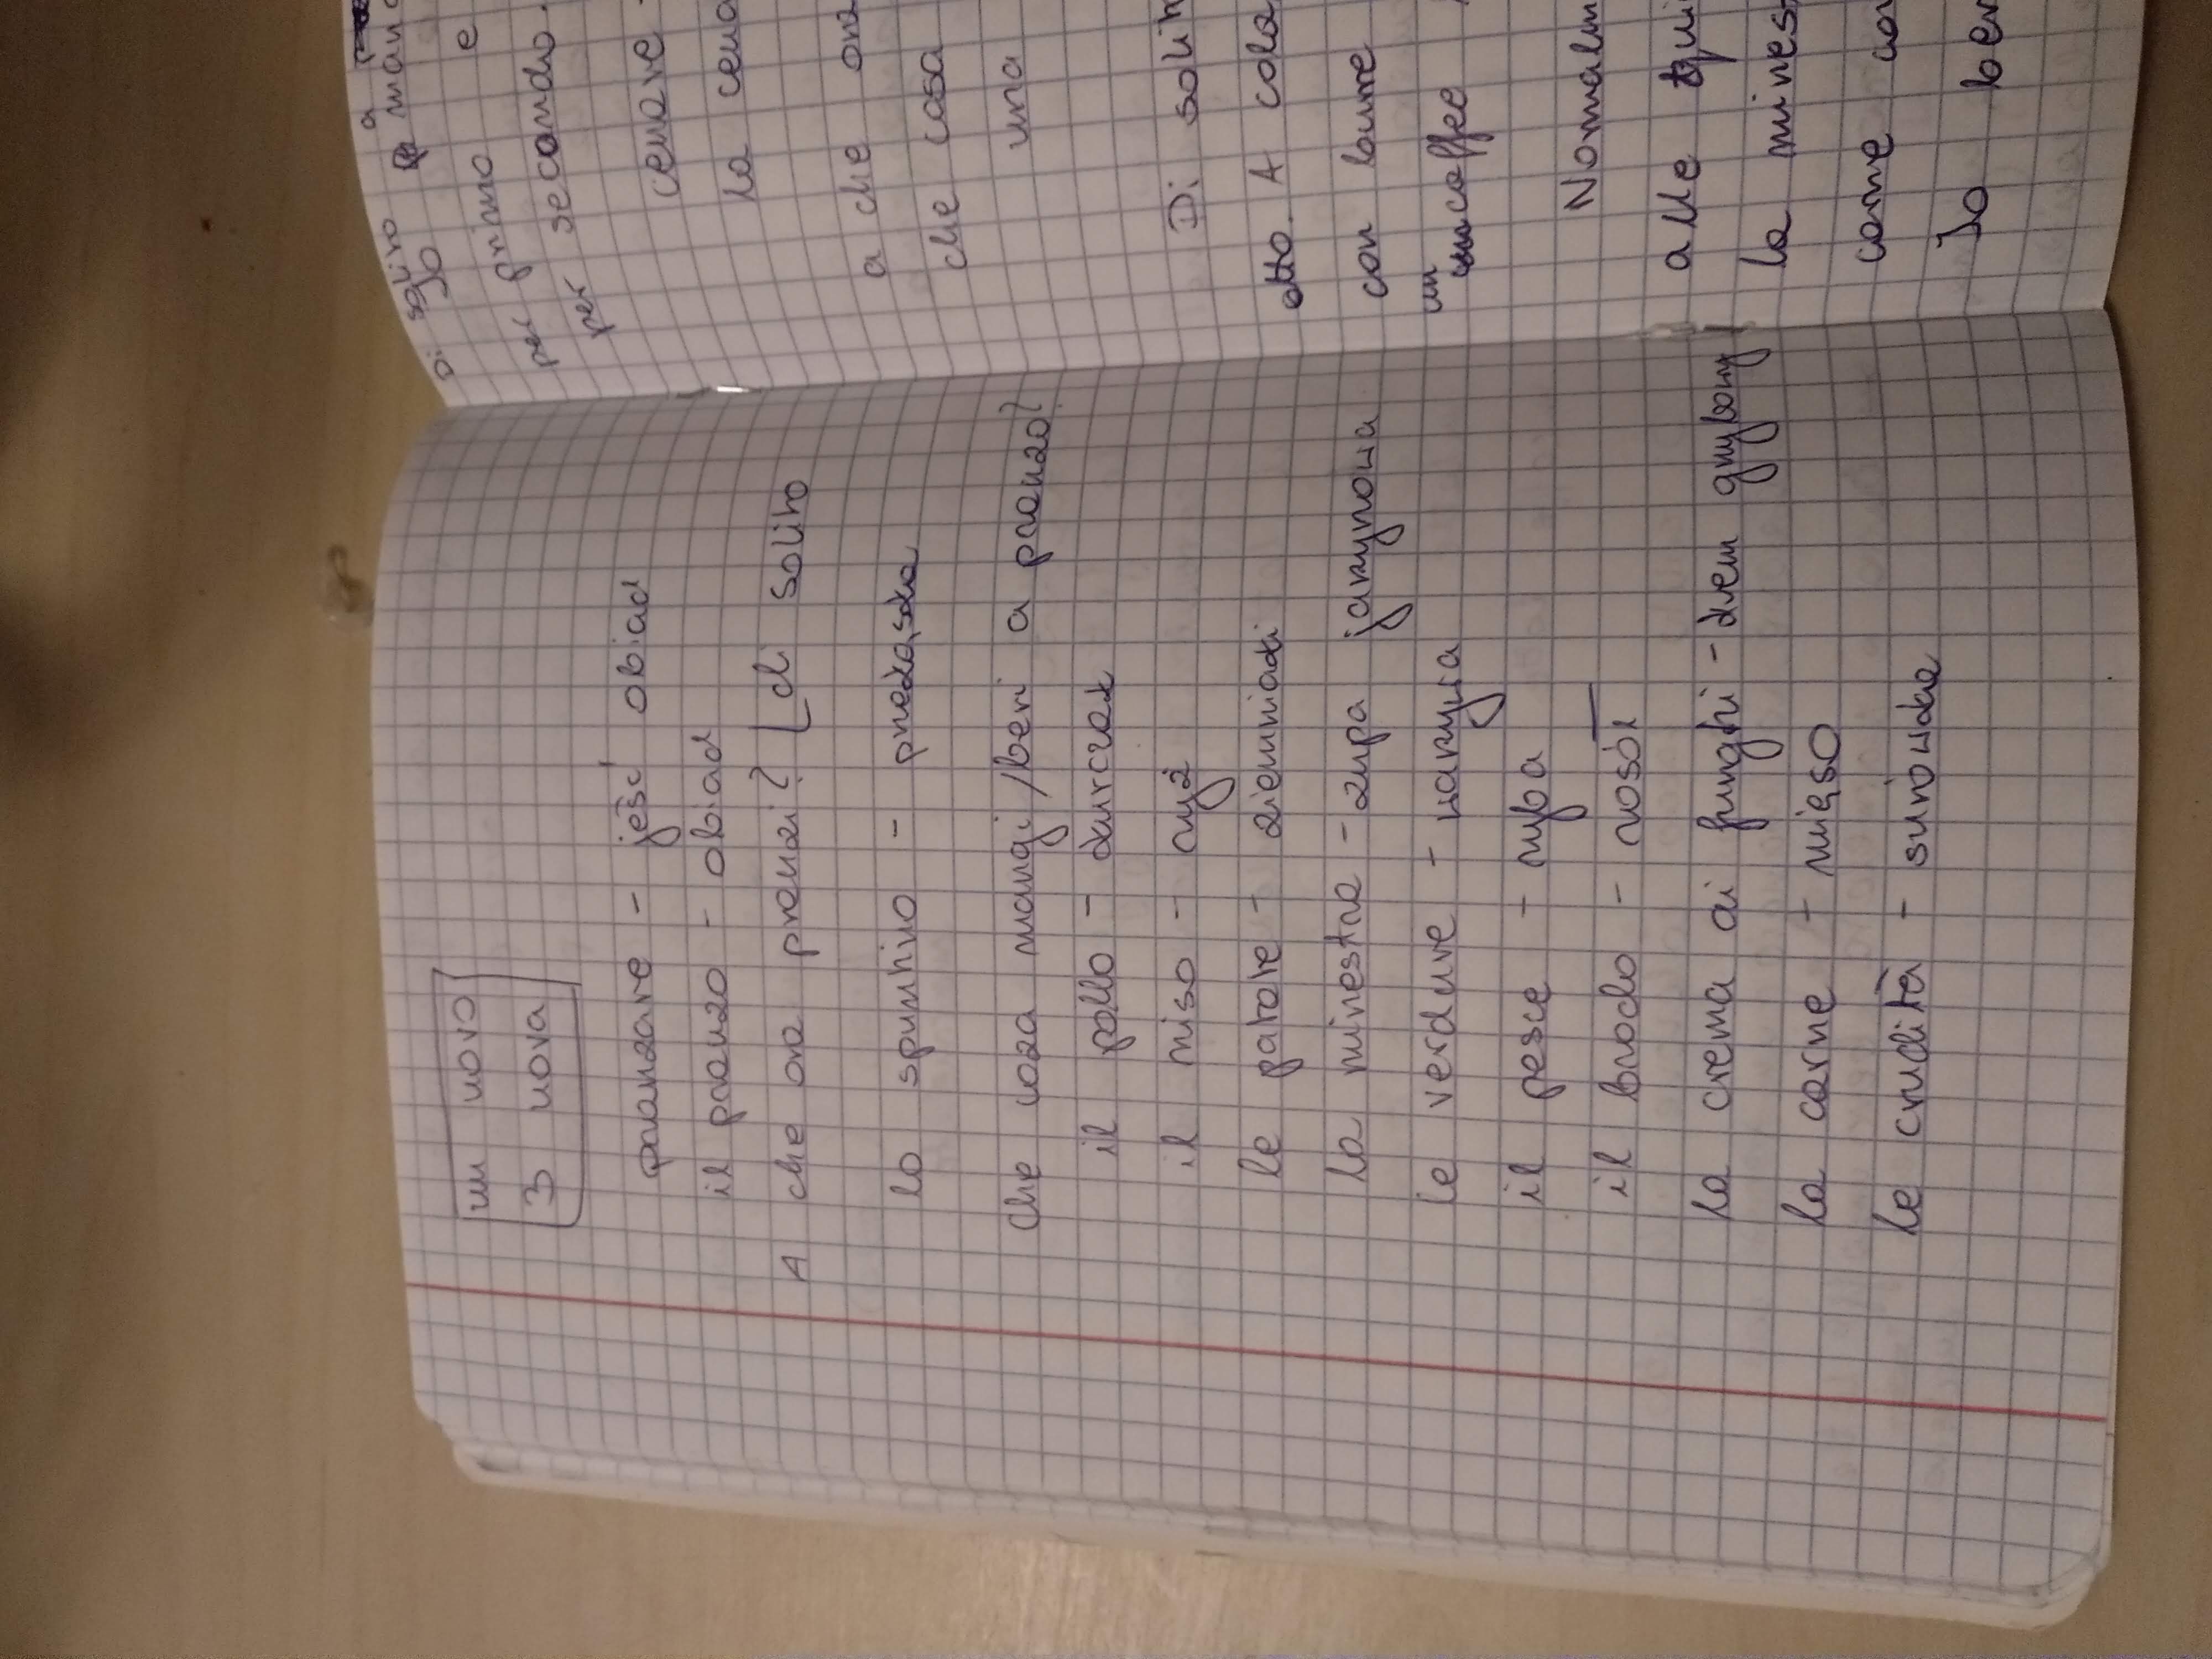 un uovo
3 uova
pranzare - jeść obiad
il pranzo - obiad
A che ora pranzi? di solito
lo spuntino - przekąska
che coza mangi/bevi a pranzo?
il pollo - kurczak
il riso - ryż
le patate - ziemniaki
la minestra - zupa jarzynowa
le verdure - warzywa
il pesce - ryba
il brodo - rosół
la crema di funghi - krem grzybowy
la carne - mięso
le crudità - surówka
a
Di solito
Jo
per primo e
per secondo.
cenare -
la cena
a che ora
che cosa
una
Di
otto. A
con burre
un
caffee
alle
la
carne
Jo